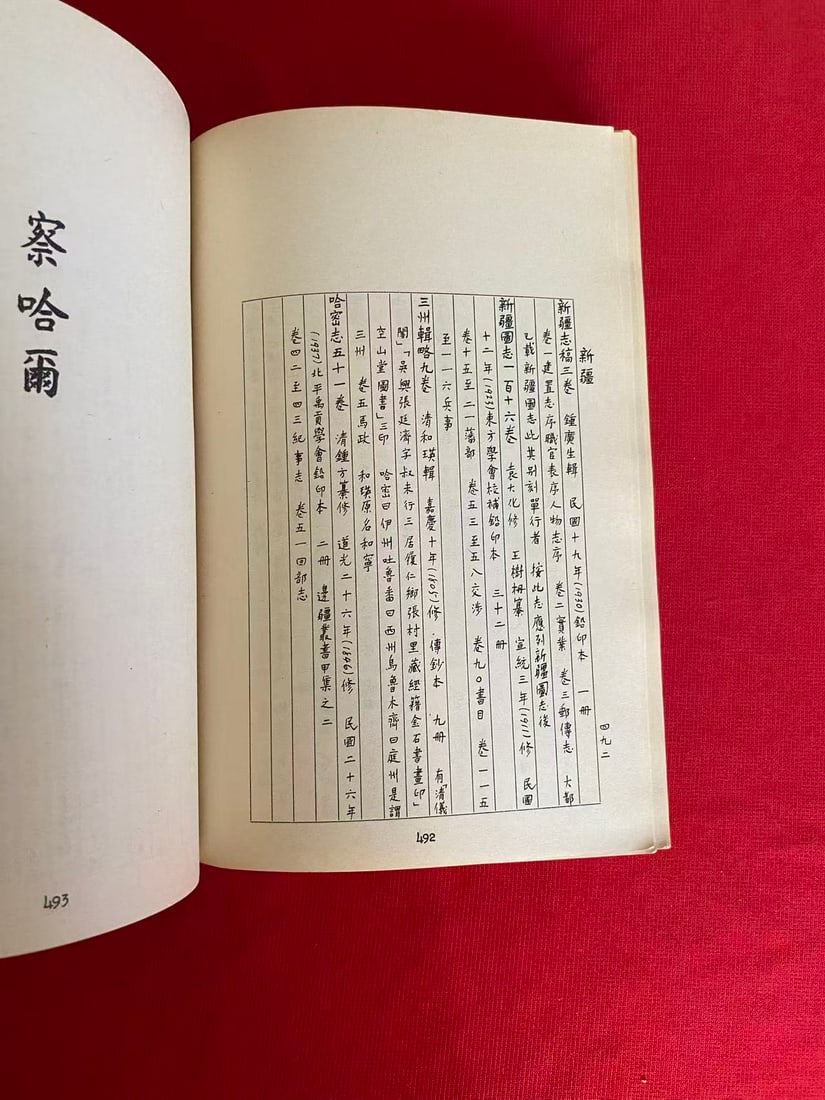 新疆
四九二
新疆志稿三卷　鍾廣生輯　民國十九年(1930)鉛印本　一冊
卷一建置志序職官表序人物志序　卷二實業　卷三郵傳志　大都
已載新疆圖志此其別刻單行者　按此志應列新疆圖志後
新疆圖志一百十六卷　袁大化修　王樹枏纂　宣統三年(1911)修　民國
十二年(1923)東方學會校補鉛印本　三十二冊
卷十五至二一藩部　卷五三至五八交涉　卷九〇書目　卷一一五
至一一六兵事
三州輯略九卷　清和瑛輯　嘉慶十年(1805)修·傳鈔本　九冊　有「清儀
閣」「吳興張廷濟字叔未行三居履仁鄉張村里藏經籍金石書畫印」
空山堂圖書」三印　哈密曰伊州吐魯番曰西州烏魯木齊曰庭州是謂
三州　卷五馬政　和瑛原名和寧
哈密志五十一卷　清鍾方纂修　道光二十六年(1846)修　民國二十六年
(1937)北平禹貢學會鉛印本　二冊　邊疆叢書甲集之二
卷四二至四三紀事志　卷五一回部志
492
察哈爾
493